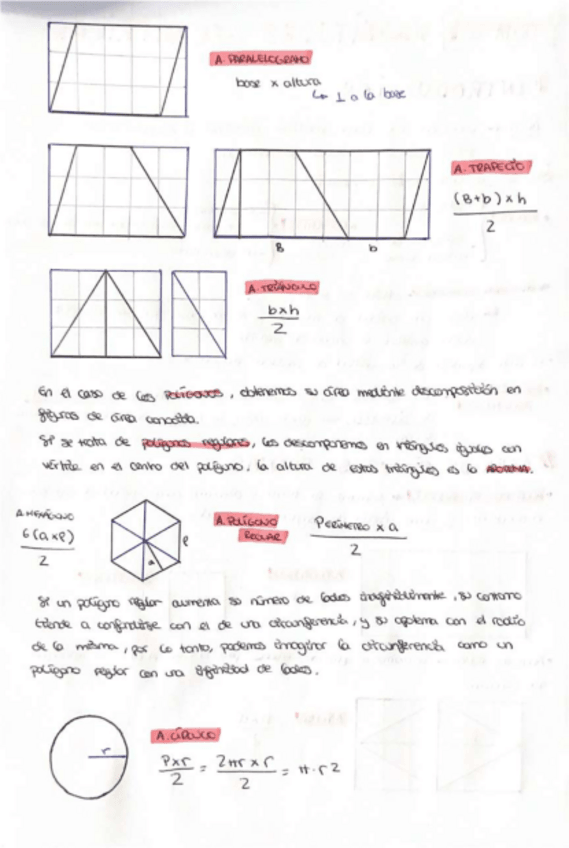 A. PARALELOGRAMO
base x altura
↳ ⊥ a la base
A. TRAPECIO
(B+b) x h
2
B
b
A. TRIÁNGULO
bxh
2
En el caso de los polígonos, obtenemos su área mediante descomposición en
figuras de área conocida.
Si se trata de polígonos regulares, los descomponemos en triángulos iguales con
vértice en el centro del polígono, la altura de estos triángulos es la apotema.
A. HEXÁGONO
6(axl)
2
a
l
A. POLÍGONO
REGULAR
PERÍMETRO x a
2
Si un polígono regular aumenta su número de lados indefinidamente, su contorno
tiende a confundirse con el de una circunferencia, y su apotema con el radio
de la misma, por lo tanto, podemos imaginar la circunferencia como un
polígono regular con una infinidad de lados.
r
A. CÍRCULO
Pxr
2
=
2πr x r
2
= π·r2